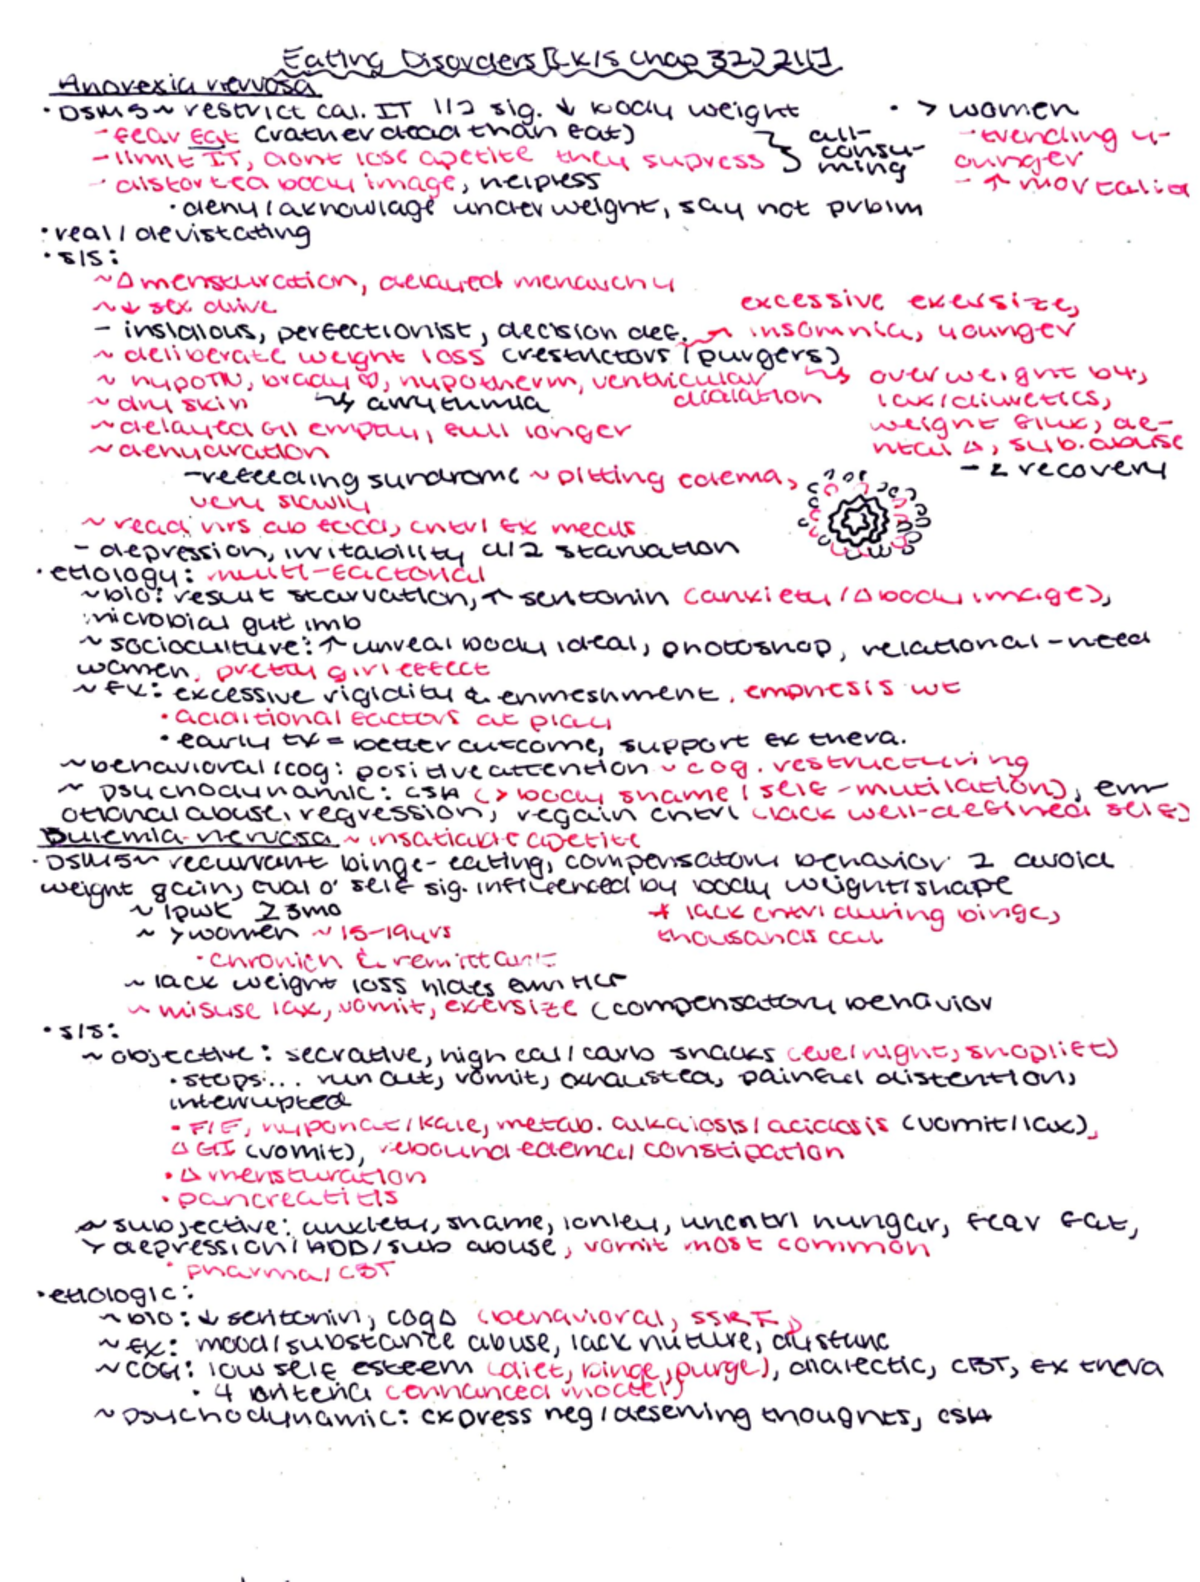 Eating Disorders [LK15 Chap 32] 211]
Anorexia nervosa
• DSM5~ restrict cal. IT 1/2 sig. ↓ body weight
• > women
- fear Eat (rather dead than eat)
- limit IT, dont lose apetite they supress
} all-consu-
ming
- trending y-
ounger
- distorted body image, helpless
- ↑ mortalid
• deny/aknowlage underweight, say not prblm
• real/devistating
• S/S:
~ Δ mensturation, delayed menarchy
~ ↓ sex drive
- insidious, perfectionist, decision def.
→ excessive exersize,
insomnia, younger
~ deliberate weight loss (restrictors/purgers)
~ hypoTN, brady ♡, hypotherm, ventricular
dialation
↳ overweight b4,
lax/diuretics,
weight flux, de-
ntal Δ, sub.abuse
~ dry skin ↳ arrytumia
~ delayed GI empty, full longer
~ dehydration
- refeeding syndrome ~ pitting edema,
very slowly
- 2 recovery
~ read hrs ab food, cntrl fx meals
- depression, irritability d/2 starvation
• etiology: multi-factorial
~ bio: result starvation, ↑ seritonin (anxiety/Δ body image),
microbial gut imb
~ socioculture: ↑ unreal body ideal, photoshop, relational-need
women, pretty girl effect
~ fx: excessive rigidity & enmeshment, emphesis wt
• additional factors at play
• early tx = better outcome, support fx thera.
~ behavioral/cog: positive attention ~ cog. restructuring
~ psychodynamic: CSA (> body shame/self-mutilation), em-
otional abuse, regression, regain cntrl (lack well-defined self)
Bulemia-nervosa ~ insatiable apetite
• DSM5~ recurrant binge-eating, compensatory behavior 2 avoid
weight gain, eval o' self sig. influenced by body weight/shape
~ 1pwk 23mo
~ >women ~ 15-19yrs
* lack cntrl during binge,
thousands cal.
• chronich & remittant
~ lack weight loss hides
~ misuse lax, vomit, exersize (compensatory behavior
• S/S:
~ objective: secrative, high cal/carb snacks (eve/night, shoplift)
• stops... run out, vomit, exhausted, painful distention,
interrupted
• F/E, hyponat/kale, metab. alkalosis/acidosis (vomit/lax),
Δ GI (vomit), rebound edema/constipation
• Δ mensturation
• pancreatitis
~ subjective: anxiety, shame, lonley, uncntrl hungar, fear fat,
> depression/ADD/sub abuse, vomit most common
• pharma/CBT
• etiologic:
~ bio: ↓ seritonin, cogΔ (behavioral, SSRI)
~ fx: mood/substance abuse, lack nuture, dysfunc
~ COG: low self esteem (diet, binge, purge), dialectic, CBT, fx thera
• 4 criteria (enhanced model)
~ psychodynamic: express neg/desening thoughts, CSA